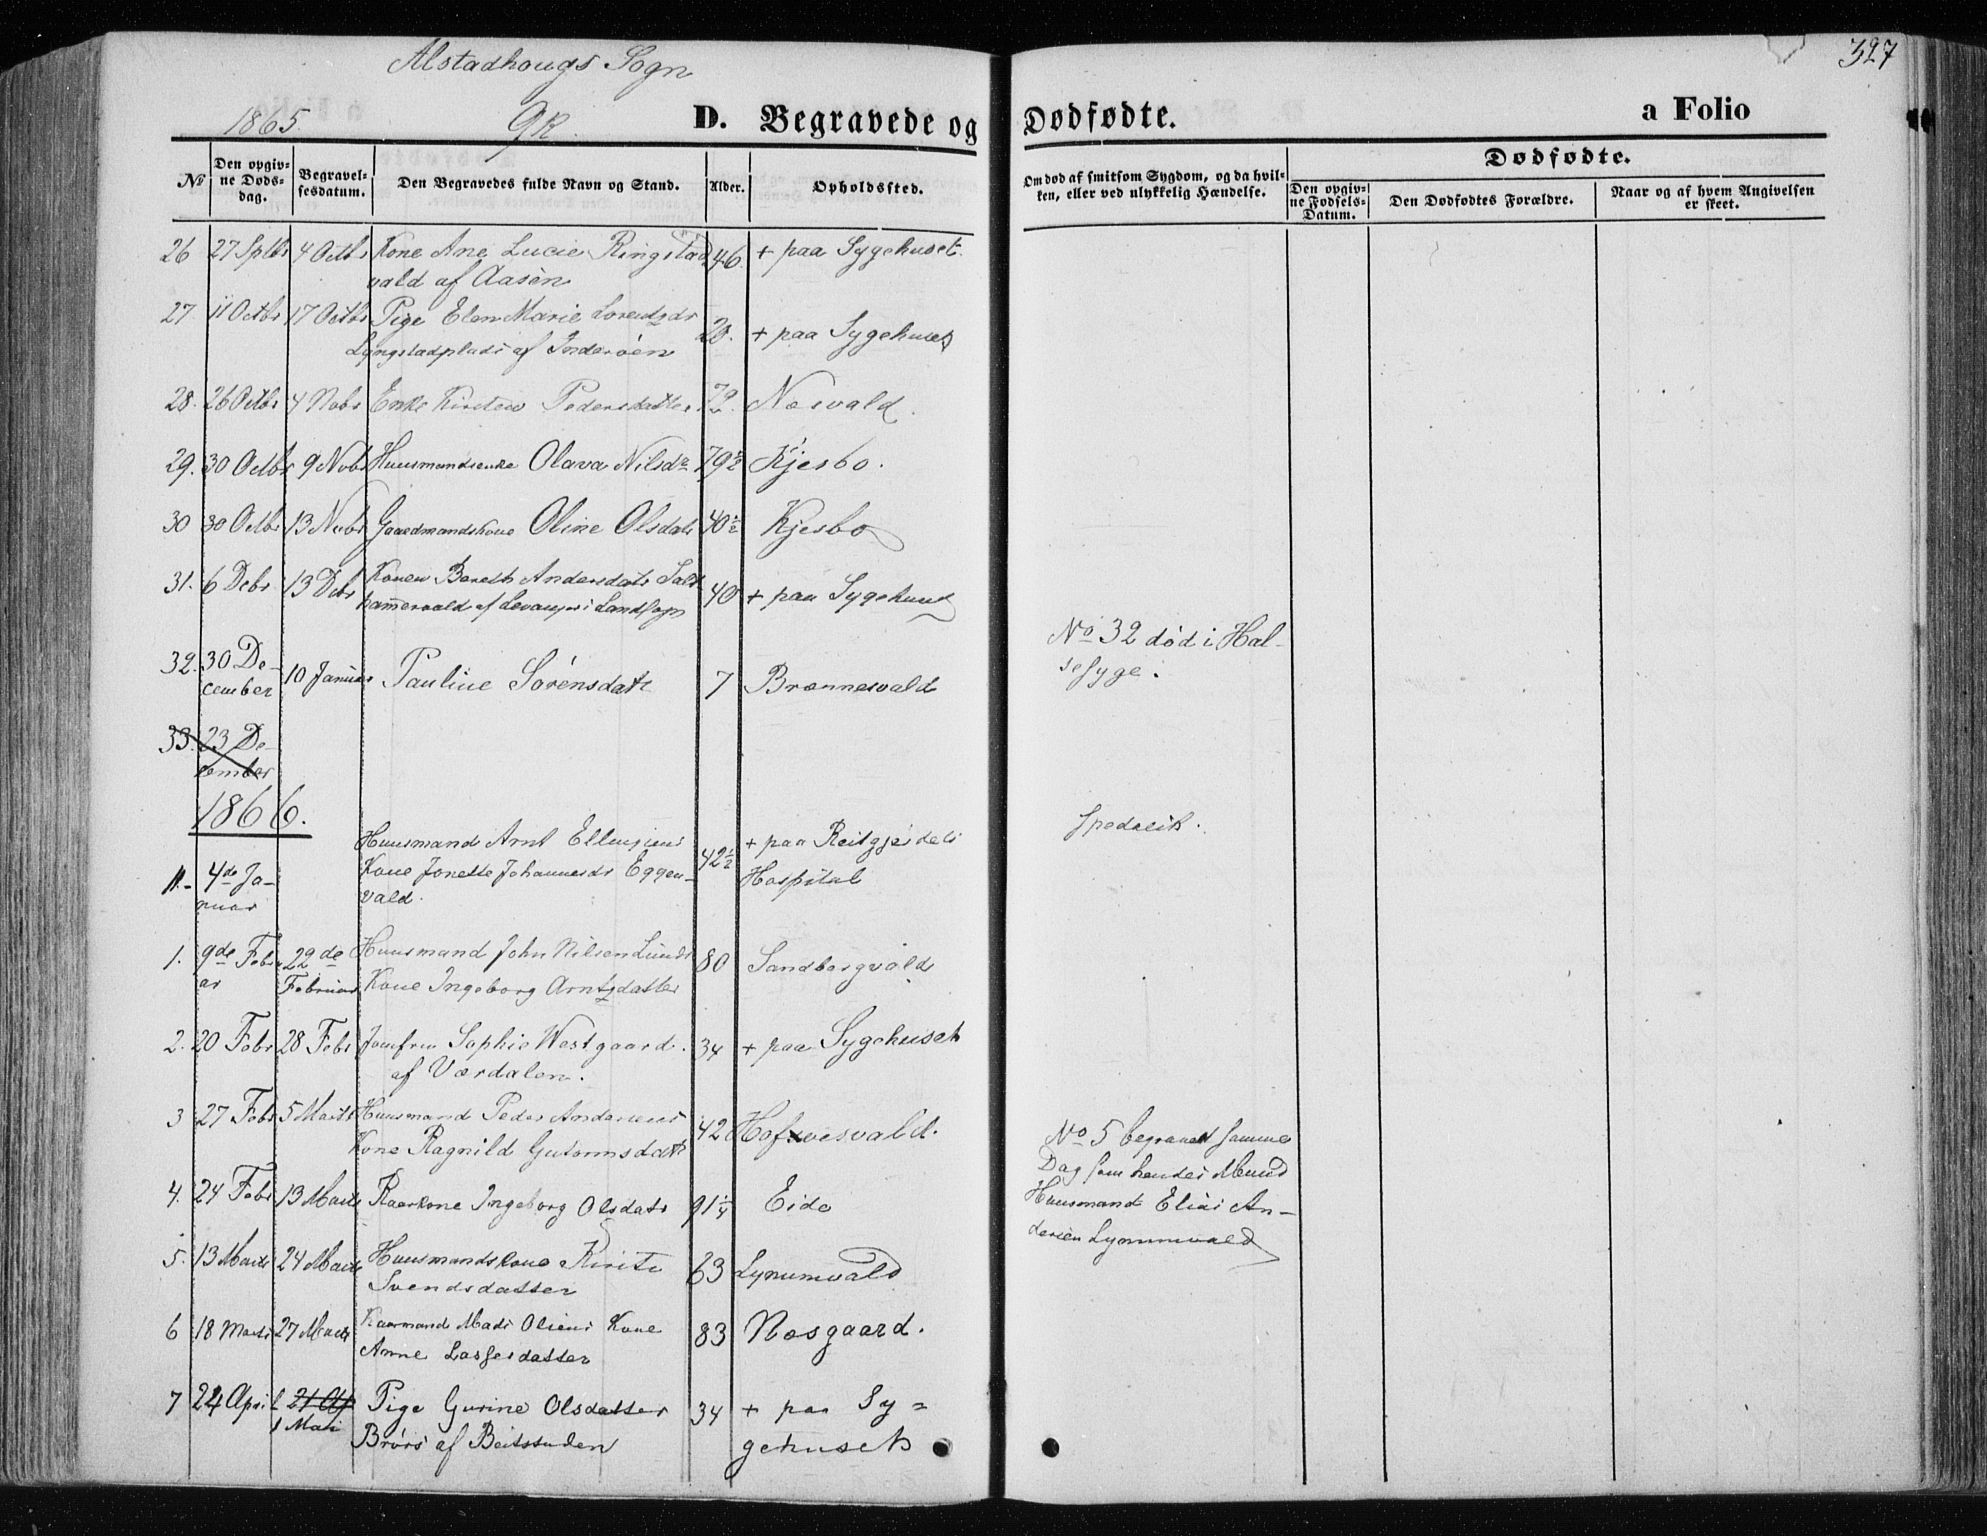 Alstadhougs Sogn
327
1865. QK. D. Begravede og Dødfødte. a Folio
No
Den opgivne Døds-dag.
Begravelsesdatum.
Den Begravedes fulde Navn og Stand.
Alder.
Opholdssted.
Om død af smitsom Sygdom, og da hvilken, eller ved ulykkelig Hændelse.
Dødfødte.
Den opgivne Fødsels-Datum.
Den Dødfødtes Forældre.
Naar og af hvem Angivelsen er skeet.
26 27 Sptbr 4 Octbr Kone Ane Lucie Ringstad 46. + paa Sygehuset.
vald af Aasen
27 11 Octbr 17 Octbr Pige Elen Marie Lorentzdr 20. + paa Sygehuset
Lyngstadplads af Inderøen
28. 26 Octbr 4 Nobr Enke Kirsten Pedersdatter 72. Nesvald.
29. 30 Octbr 9 Nobr Huusmandsenke Olava Nilsdr 79½ Kjesbo.
30 30 Octbr 13 Nobr Gaardmandskone Oline Olsdatr 40½ Kjesbo
31. 6 Debr 13 Debr Konen Bereth Andersdatr Salt 40 + paa Sygehuset
hammervald af Levanger Landsogn
32. 30 De- 10 Januar Pauline Sørensdatr 7 Brænnesvald
cember
No 32 død i Hal-
sesyge.
33. 23 De-
cember
1866.
Huusmand Arnt Ellingsens + paa Reitgjerdets
1. 4de Ja- Kone Jonette Johannesdr Eggen- 42½ Hospital
nuar vald.
Spedalsk.
1. 9de Febr 22de Huusmand John Nilsen Lunds 80 Sandbergvald
ar Februar Kone Ingeborg Arntzdatter
2. 20 Febr 28 Febr Jomfru Sophie Westgaard. 34 + paa Sygehuset
af Værdalen.
3 27 Febr 5 Marts Huusmand Peder Andersens 42 Hofsvesvald.
Kone Ragnild Gutormsdatr
4. 24 Febr 13 Marts Kaarkone Ingeborg Olsdatr 91¼ Eide
5. 13 Marts 24 Marts Huusmandskone Kirste 63 Lynumvald
Svendsdatter
No 5 begravet samme
Dag som hendes Mand
Huusmand Elias An-
dersen Lynumvald
6 18 Marts 27 Marts Kaarmand Mads Olsens Kone 83 Nesgaard.
Anne Lassesdatter
7 24 April 21 Ap Pige Gurine Olsdatter 34 + paa Sy=
1 Mai Brørs af Beitstaden gehuset